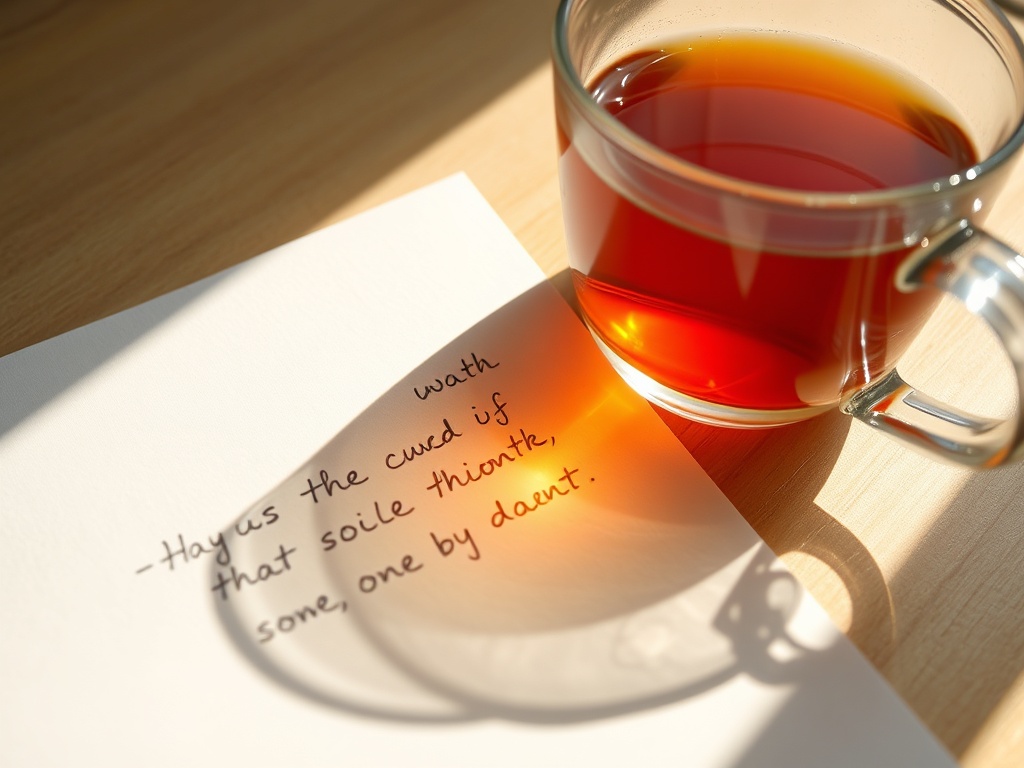 wath
-Hay us the cuvcd if
that soile thiontk,
some, one by daent.